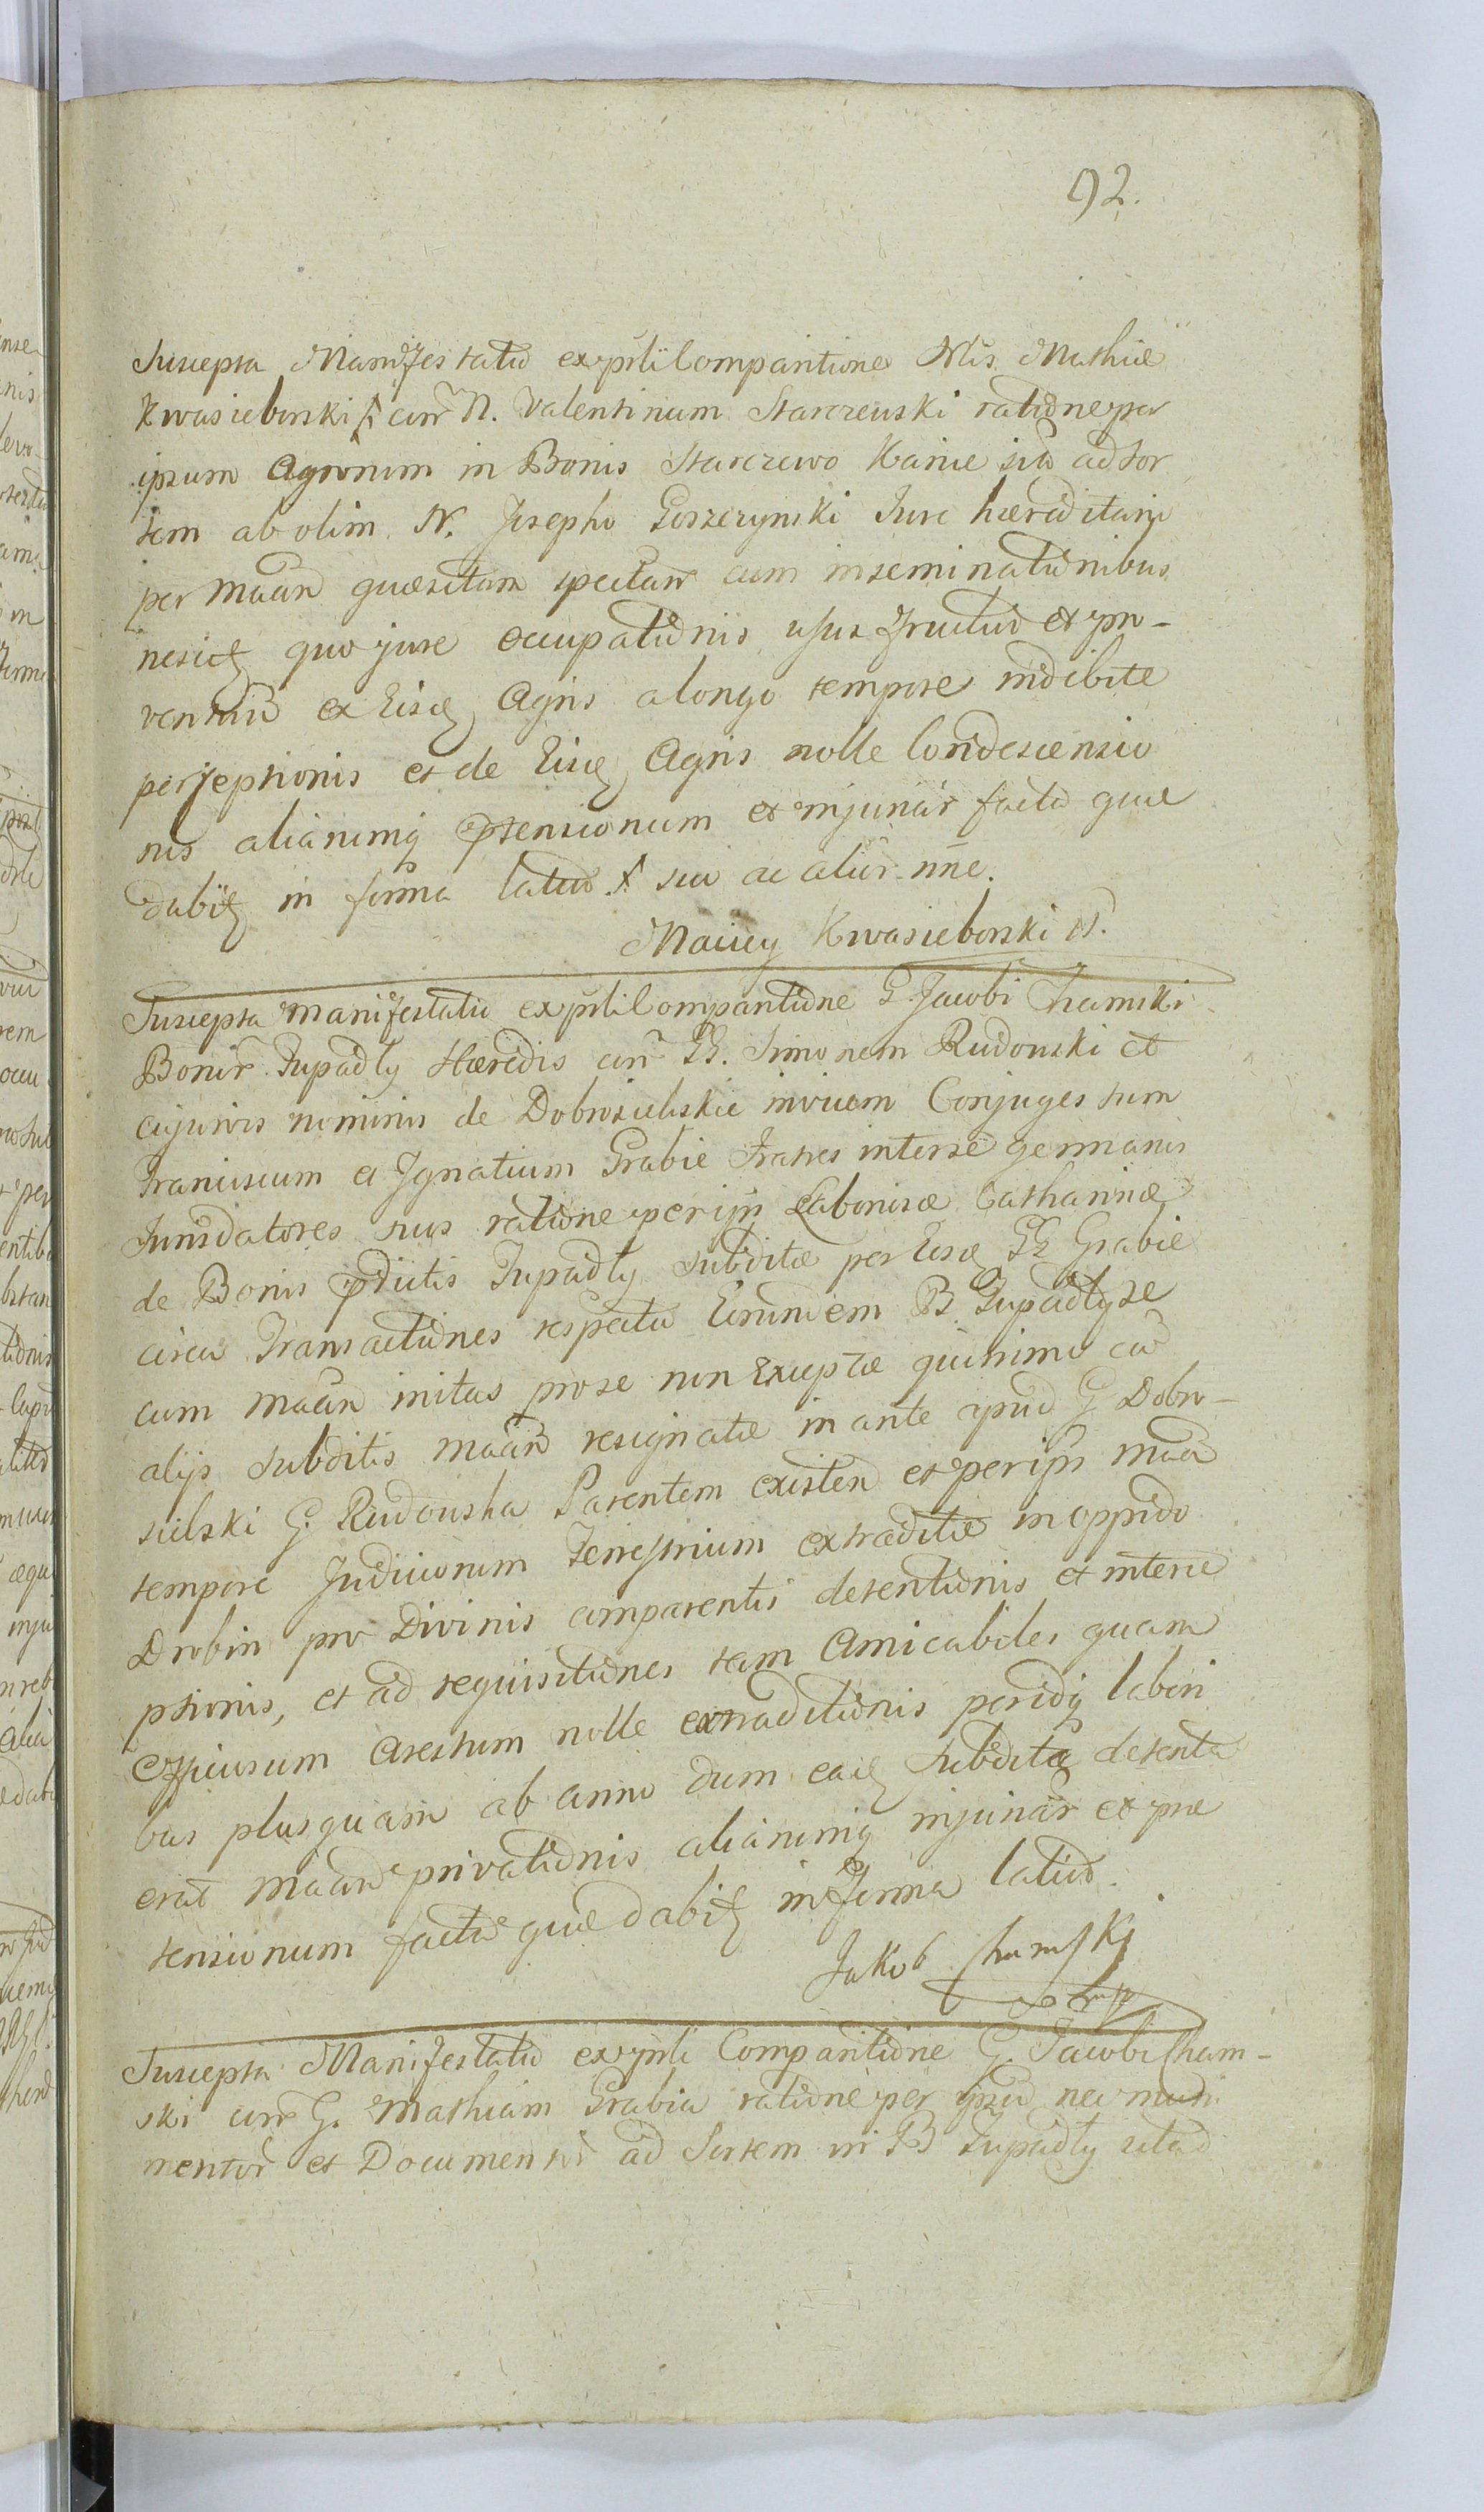 92.
Suscepta Manifestatio ex prśli Comparitione Nlis Mathiæ
Kwasieborski cīm N. Valentinum Starczewski ratione per
ipsum Agrorum in Bonis Starczewo Kanie sito ad sor
tem ab olim N. Josepho Goszczynski Jure hæreditario
per maān quæsitam spectan̄ cum inseminationibus
nescitq quo jure occupationis usus fructus et pro-
ventuū ex Eisq Agris a longo tempore indebite
perceptionis et de Eisq Agris nolle Condescensio
nis aliarumq prtensionum et injuriar̄ factā quæ
dabitq in forma latius sui ac alior nñe.
Maciey Kwasieborski
Suscepta manifestatio ex prśli Comparitione G. Jacobi Chamski
Bonor̄ Zupadly Hæredis cīm GG. Simonem Rudowski et
cujusvis nominis de Dobrosielskie invicem Conjuges tum
Franciscum et Ignatium Grabie Fratres inter se germanos
Jurisdatores suos ratione per ip̄s Laboriosæ Catharinæ
de Bonis prdictis Zupadly subditæ per Eosq GG Grabie
circa Transactiones respectu Eorundem B. Zupadly se
cum maān initas pro se non Exceptæ quinimo cū
alijs subditis maān resignatæ in ante apud G Dobro-
sielski G. Rudowska Parentem existen̄ et per ip̄s maā
tempore Judiciorum Terrestrium extraditæ in oppido
Drobin pro Divinis comparentis detentionis et interce
ptionis, et ad requisitiones tam Amicabiles quam
Officiosum Arestum nolle extraditionis peridq labori
bus plusquam ab anno dum eadq subdita detenta
erat maān privationis aliarumq injuriar̄ et præ
tensionum factā quæ dabitq in forma latius.
Jakob Chamski
Suscepta Manifestatio ex prśli Comparitione G. Jacobi Cham-
ski cīm G. Mathiam Grabia ratione per ipsū nec muni
mentor̄ et Documentor̄ ad Sortem in B Zupadly